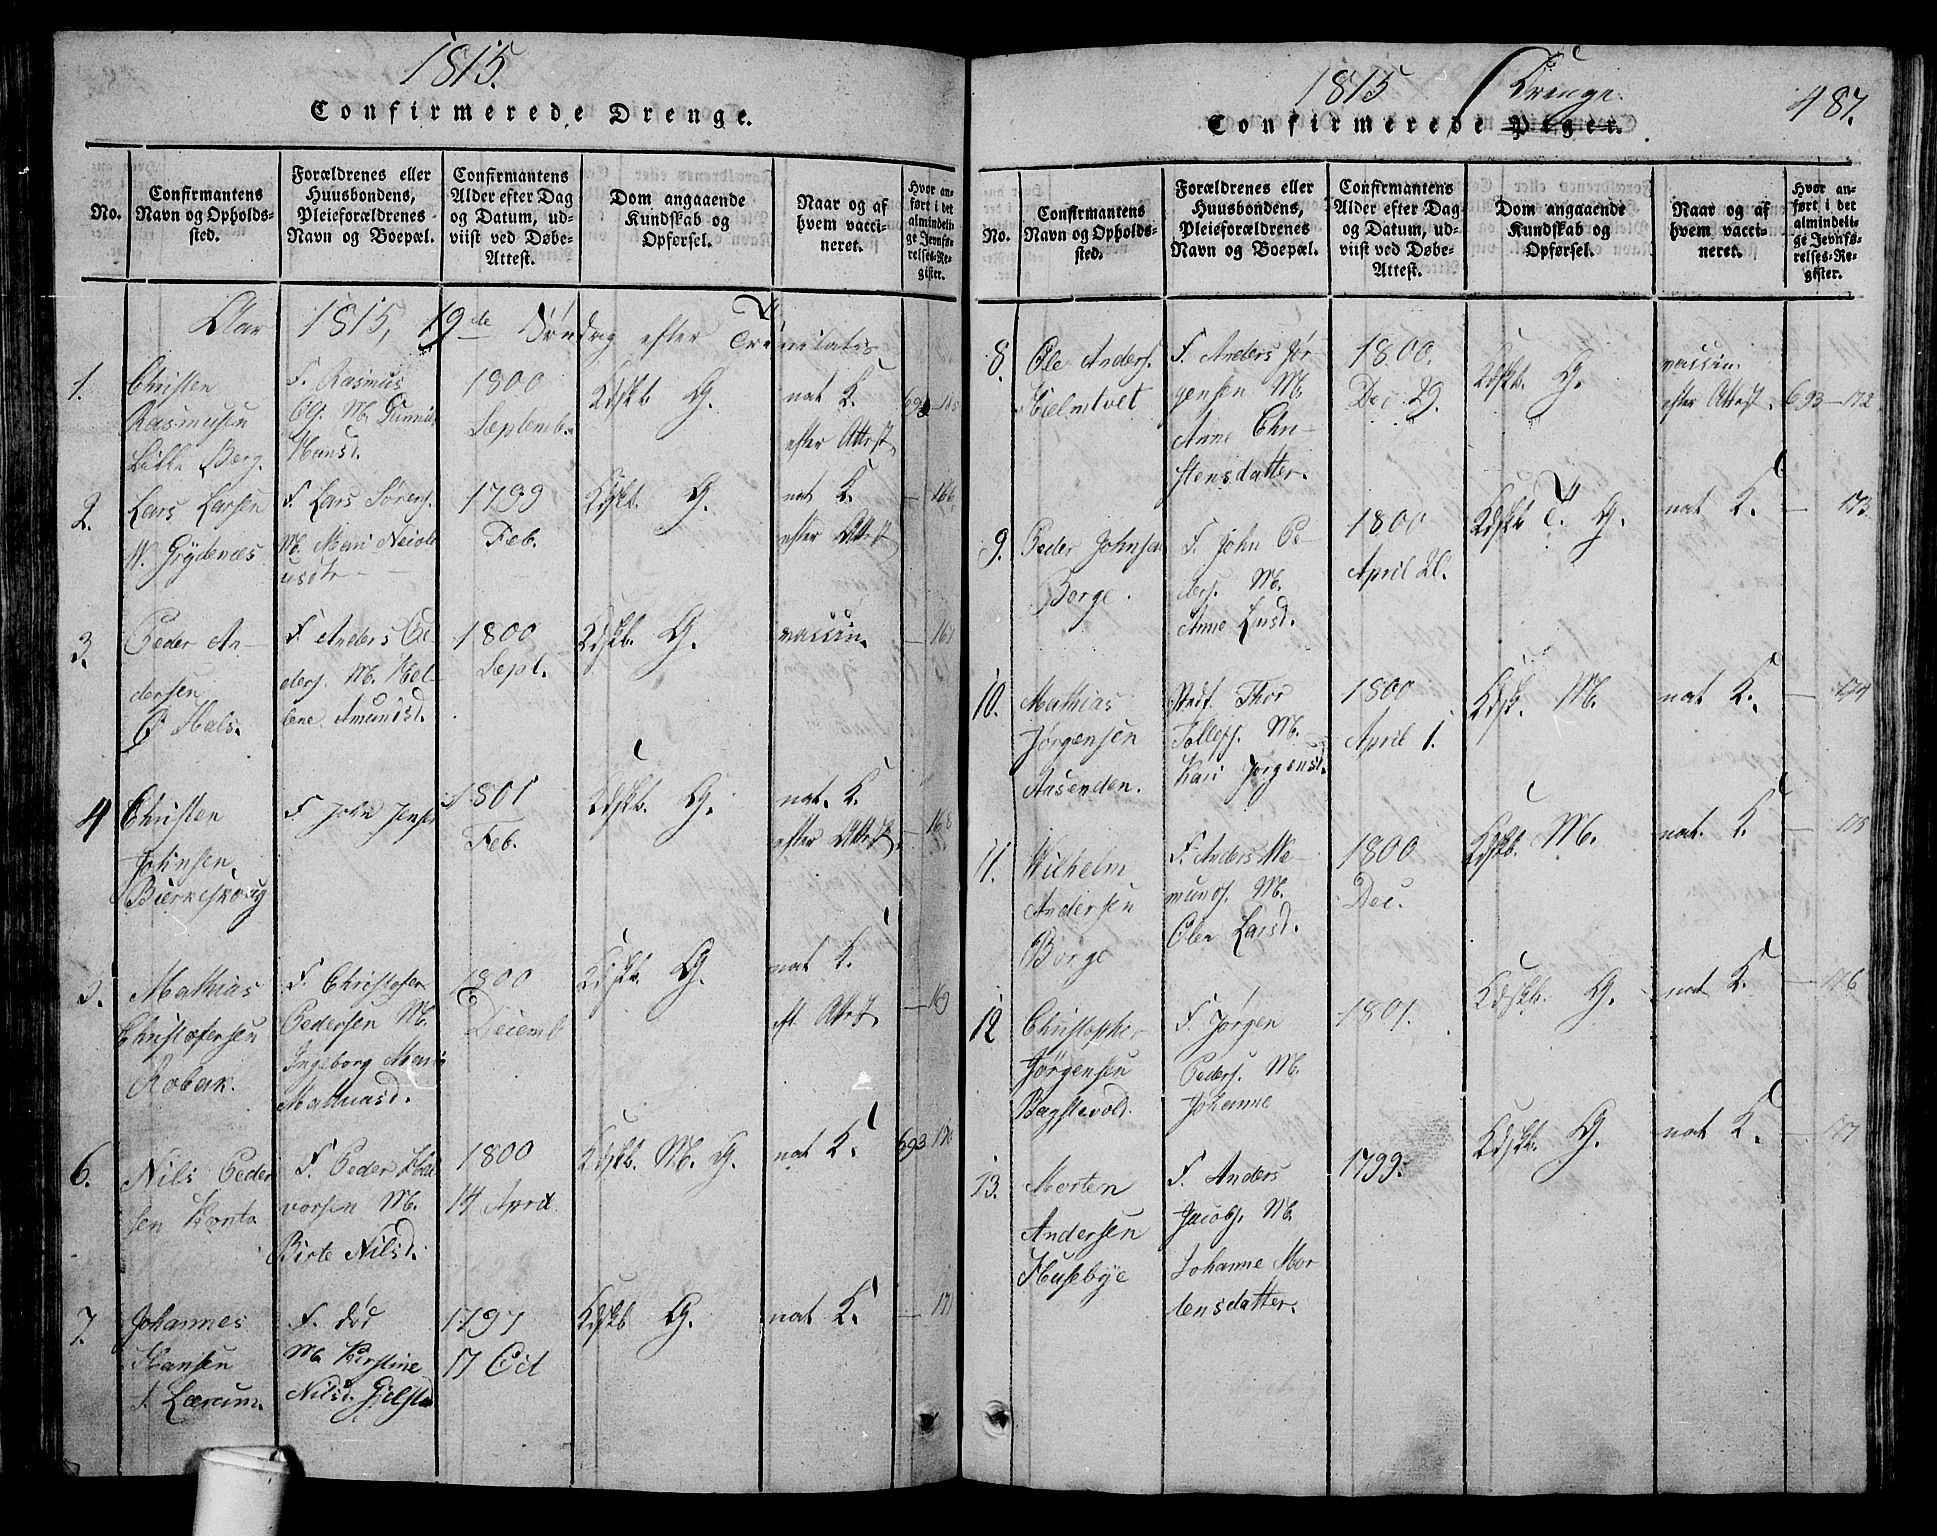 1815.
Confirmerede Drenge.
No.
Confirmantens
Navn og Opholds-
sted.
Forældrenes eller
Huusbondens,
Pleieforældrenes
Navn og Boepæl.
Confirmantens
Alder efter Dag
og Datum, ud-
viist ved Døbe-
Attest.
Dom angaaende
Kundskab og
Opførsel.
Naar og af
hvem vacci-
neret.
Hvor an-
ført i det
almindeli-
ge Jevnfø-
relses-Re-
gister.
Aar 1815, 19de Søndag efter Trinitatis
1.
Christen
Rasmusen
Lille Berg.
F. Rasmus
M.
Hansd.
1800
Septemb.
Kdskb. G.
nat K.
efter Attest
2.
Lars Larsen
N. Grydenæs
F. Lars Sørens.
M. Mari
1799
Feb.
Kdskb. G.
nat K.
efter Attest
— 166
3.
Peder An-
dersen
Ø Hals.
F. Anders Pe-
ders. M. Hel-
lene Amundsd.
1800
Sept.
Kdskb. G.
vaccin.
— 167
4
Christen
Johnsen
Bierkeskoug
F. John Jens
1801
Feb.
Kdskb. G.
nat. K.
efter Attest.
— 168
5.
Mathias
Christofersen
Robek.
F. Christofer
Pedersen M.
Ingeborg Marie
Mathiasd.
1800
Decemb
Kdskb. G.
nat K.
eft. Attest.
— 169
6.
Nils Peder
sen Hønto
F. Peder Hal
vorsen M.
Birte Nilsd.
1800
14 April
Kdskb. M. G.
nat K.
693 170
7.
Johannes
Hansen
F. død
M. Kirstine
Nilsd.
1797
17 Oct
Kdskb G.
nat K.
— 171
1815 Drenge. 487.
Confirmerede Piger.
No.
Confirmantens
Navn og Opholds-
sted.
Forældrenes eller
Huusbondens,
Pleieforældrenes
Navn og Boepæl.
Confirmantens
Alder efter Dag
og Datum, ud-
viist ved Døbe-
Attest.
Dom angaaende
Kundskab og
Opførsel.
Naar og af
hvem vacci-
neret.
Hvor an-
ført i det
almindeli-
ge Jevnfø-
relses-Re-
gister.
8.
Ole Anders.
Hielmtvet
F. Anders Jør-
gensen M.
Anne Chri-
stensdatter.
1800.
Dec. 29.
Kdskb. G.
vaccin.
efter Attest.
693—172
9.
Peder Johnsen
Borge.
F. John Pe-
ders. M.
Anne
1800
April 21.
Kdskb T. G.
nat K.
— 173
10.
Mathias
Jørgensen
Aasenden.
Stedf. Thor
Tollefs. M.
Kari Jørgensd.
1800
April 1.
Kdsk. M.
nat K.
— 174
11.
Wilhelm
Andersen
Borge
F. Anders We-
munds. M.
Olea Larsd.
1800
Dec.
Kdskb. M.
nat. K.
— 175
12
Christopher
Jørgensen
Bagstevold.
F. Jørgen
Peders. M.
Johanne
1801.
Kdskb. G.
nat K.
— 176
13.
Morten
Andersen
Husebye
F. Anders
Jacobs. M.
Johanne Mor
tensdatter.
1799.
Kdskb. G.
nat K.
— 177